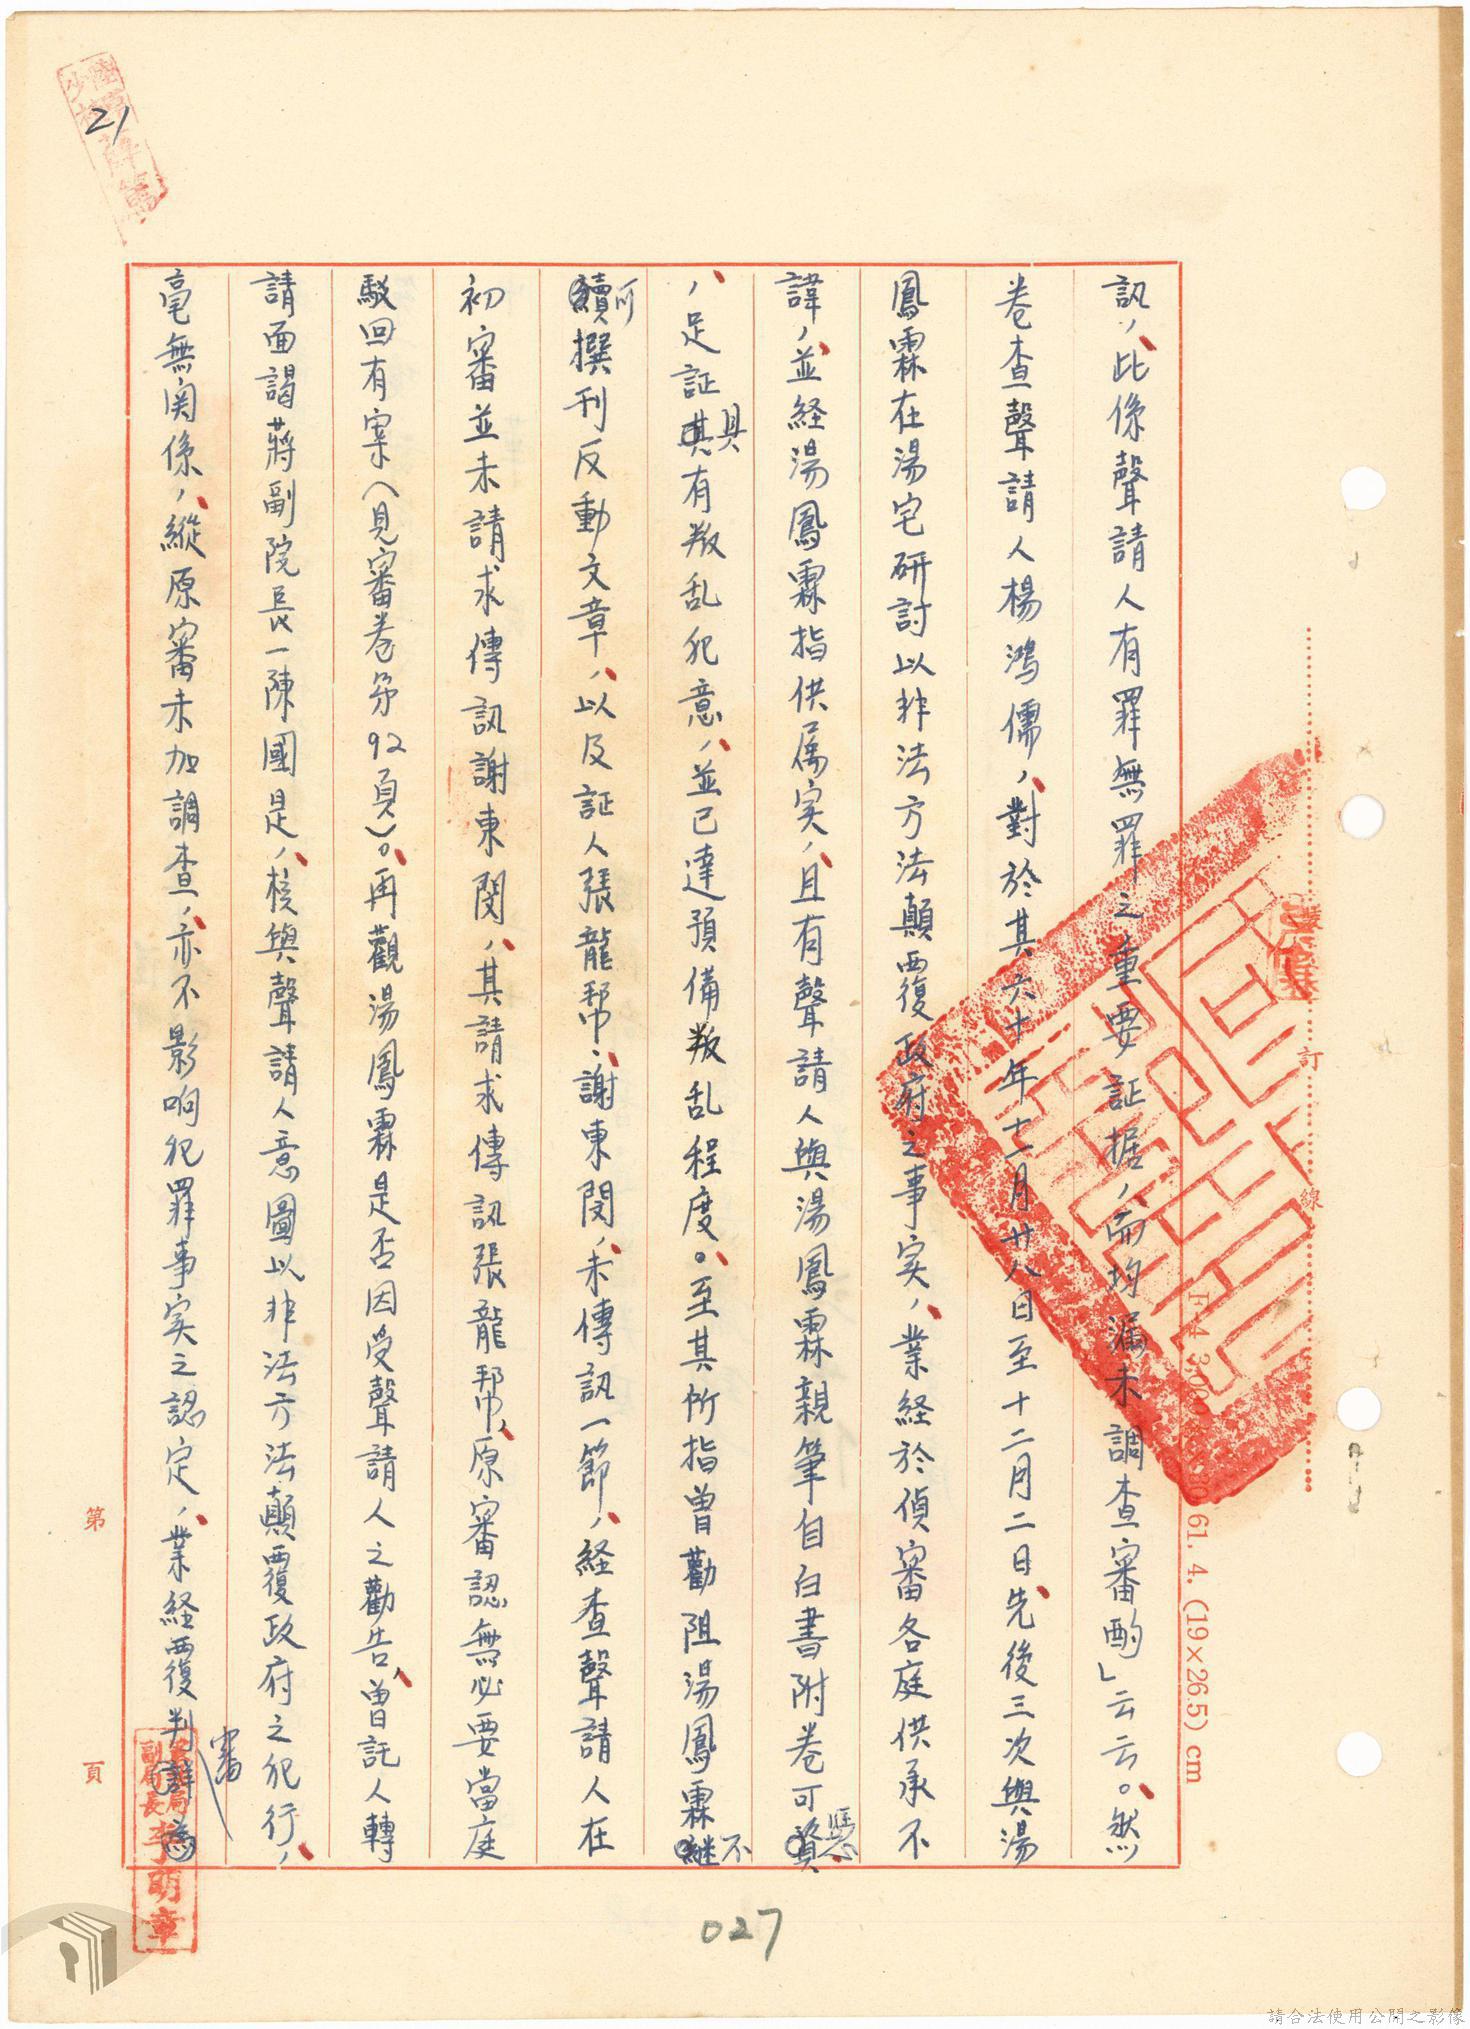 21
訊，此係聲請人有罪無罪之重要証据，而均漏未調查審酌」云云。然
卷查聲請人楊鴻儒，對於其六十年十一月廿八日至十二月二日先後三次與湯
鳳霖在湯宅研討以非法方法顛覆政府之事实，業経於偵審各庭供承不
諱，並経湯鳳霖指供属实，且有聲請人與湯鳳霖親筆自白書附卷可憑
，足証具有叛乱犯意，並已達預備叛乱程度。至其所指曾勸阻湯鳳霖不
可撰刊反動文章，以及証人張龍幇、謝東閔，未傳訊一節，経查聲請人在
初審並未請求傳訊謝東閔，其請求傳訊張龍幇，原審認無必要當庭
駁回有案（見審卷第92頁）。再觀湯鳳霖是否因受聲請人之勸告，曾託人轉
請面謁蔣副院長一陳國是，核與聲請人意圖以非法方法顛覆政府之犯行，
毫無関係，縱原審未加調查，亦不影响犯罪事实之認定，業経覆判審詳為
第 頁
訂 線
61. 4. (19×26.5) cm
軍法局副局長李萌章
027
請合法使用公開之影像